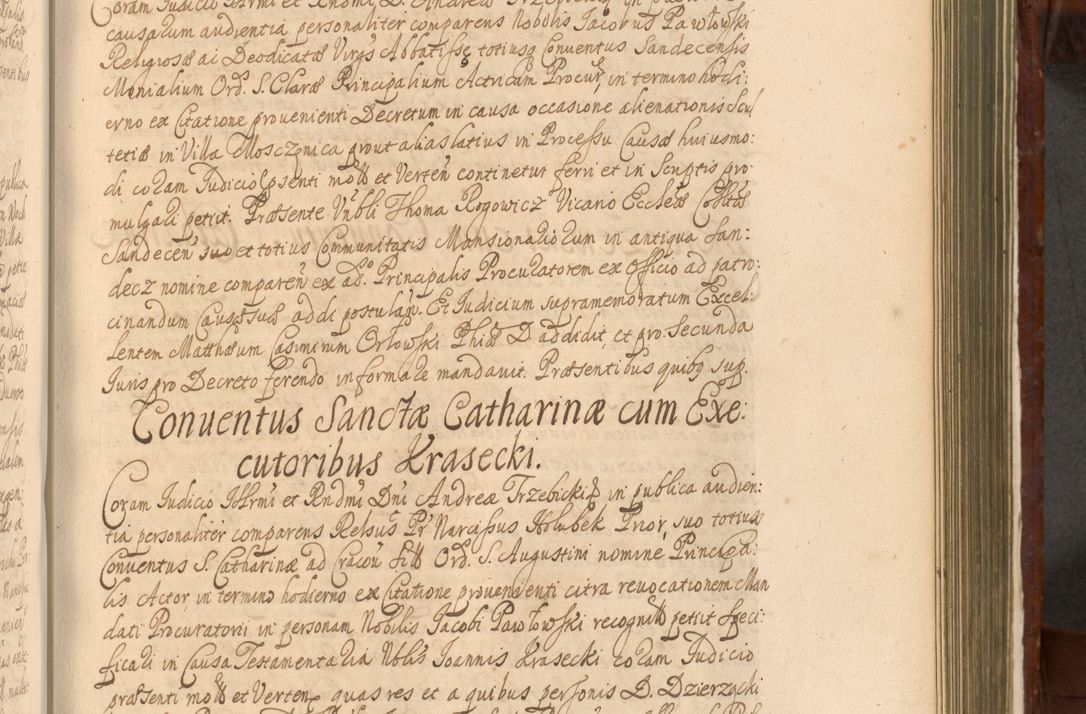 Coram Judicio Illrmi et Rndmi D. Andreæ Trzebicki in publica
causarum audientia personaliter comparens Nobilis Jacobus Pawłowski
Religiosæ ai Deodicatæ Virgs Abbatissę totiusq Conuentus Sandecensis
Monialium Ord. S. Claræ Principalium Actricum Procur, in termino hodi:
erno ex Citatione prouenienti Decretum in causa occasione alienationis Scul
tetiæ in Villa Mosczęnica prout alias latius in Processu Causæ huiusmo:
di coram Judicio psenti mott et Verten continetur ferri et in Scriptis pro
mulgari petijt. Præsente Vnbli Thoma Rogowicz Vicario Eccleæ Collttæ
Sandecen suo et totius Communitatis Mansionariorum in antiqua San:
decz nomine comparen ex aduo Principalis Procuratorem ex Officio ad patro:
cinandum Causæ suæ addi postulan. Et Judicium supramemoratum Excel:
lentem Matthæum Casimirum Orłowski Phiæ D. addidit, et pro secunda
Juris pro Decreto ferendo informare mandauit. Præsentibus quibq sup.
Conuentus Sanctæ Catharinæ cum Exe:
cutoribus Krasecki.
Coram Judicio Illrmi et Rndmi Dni Andreæ Trzebicki in publica audien:
tia personaliter comparens Relsus Pr Narcissus Holubek Prior, suo totius
Conuentus S. Catharinæ ad Cracou Ord. S. Augustini nomine Principa:
lis Actor, in termino hodierno ex Citatione prouenienti citra reuocationem Man
dati Procuratorii in personam Nobilis Jacobi Pawłowski recognitt petijt speci:
ficari in Causa Testamentaria Nblis Joannis Krasecki coram Judicio
præsenti mott et Verten quas res et a quibus personis D. Dzierzęcki